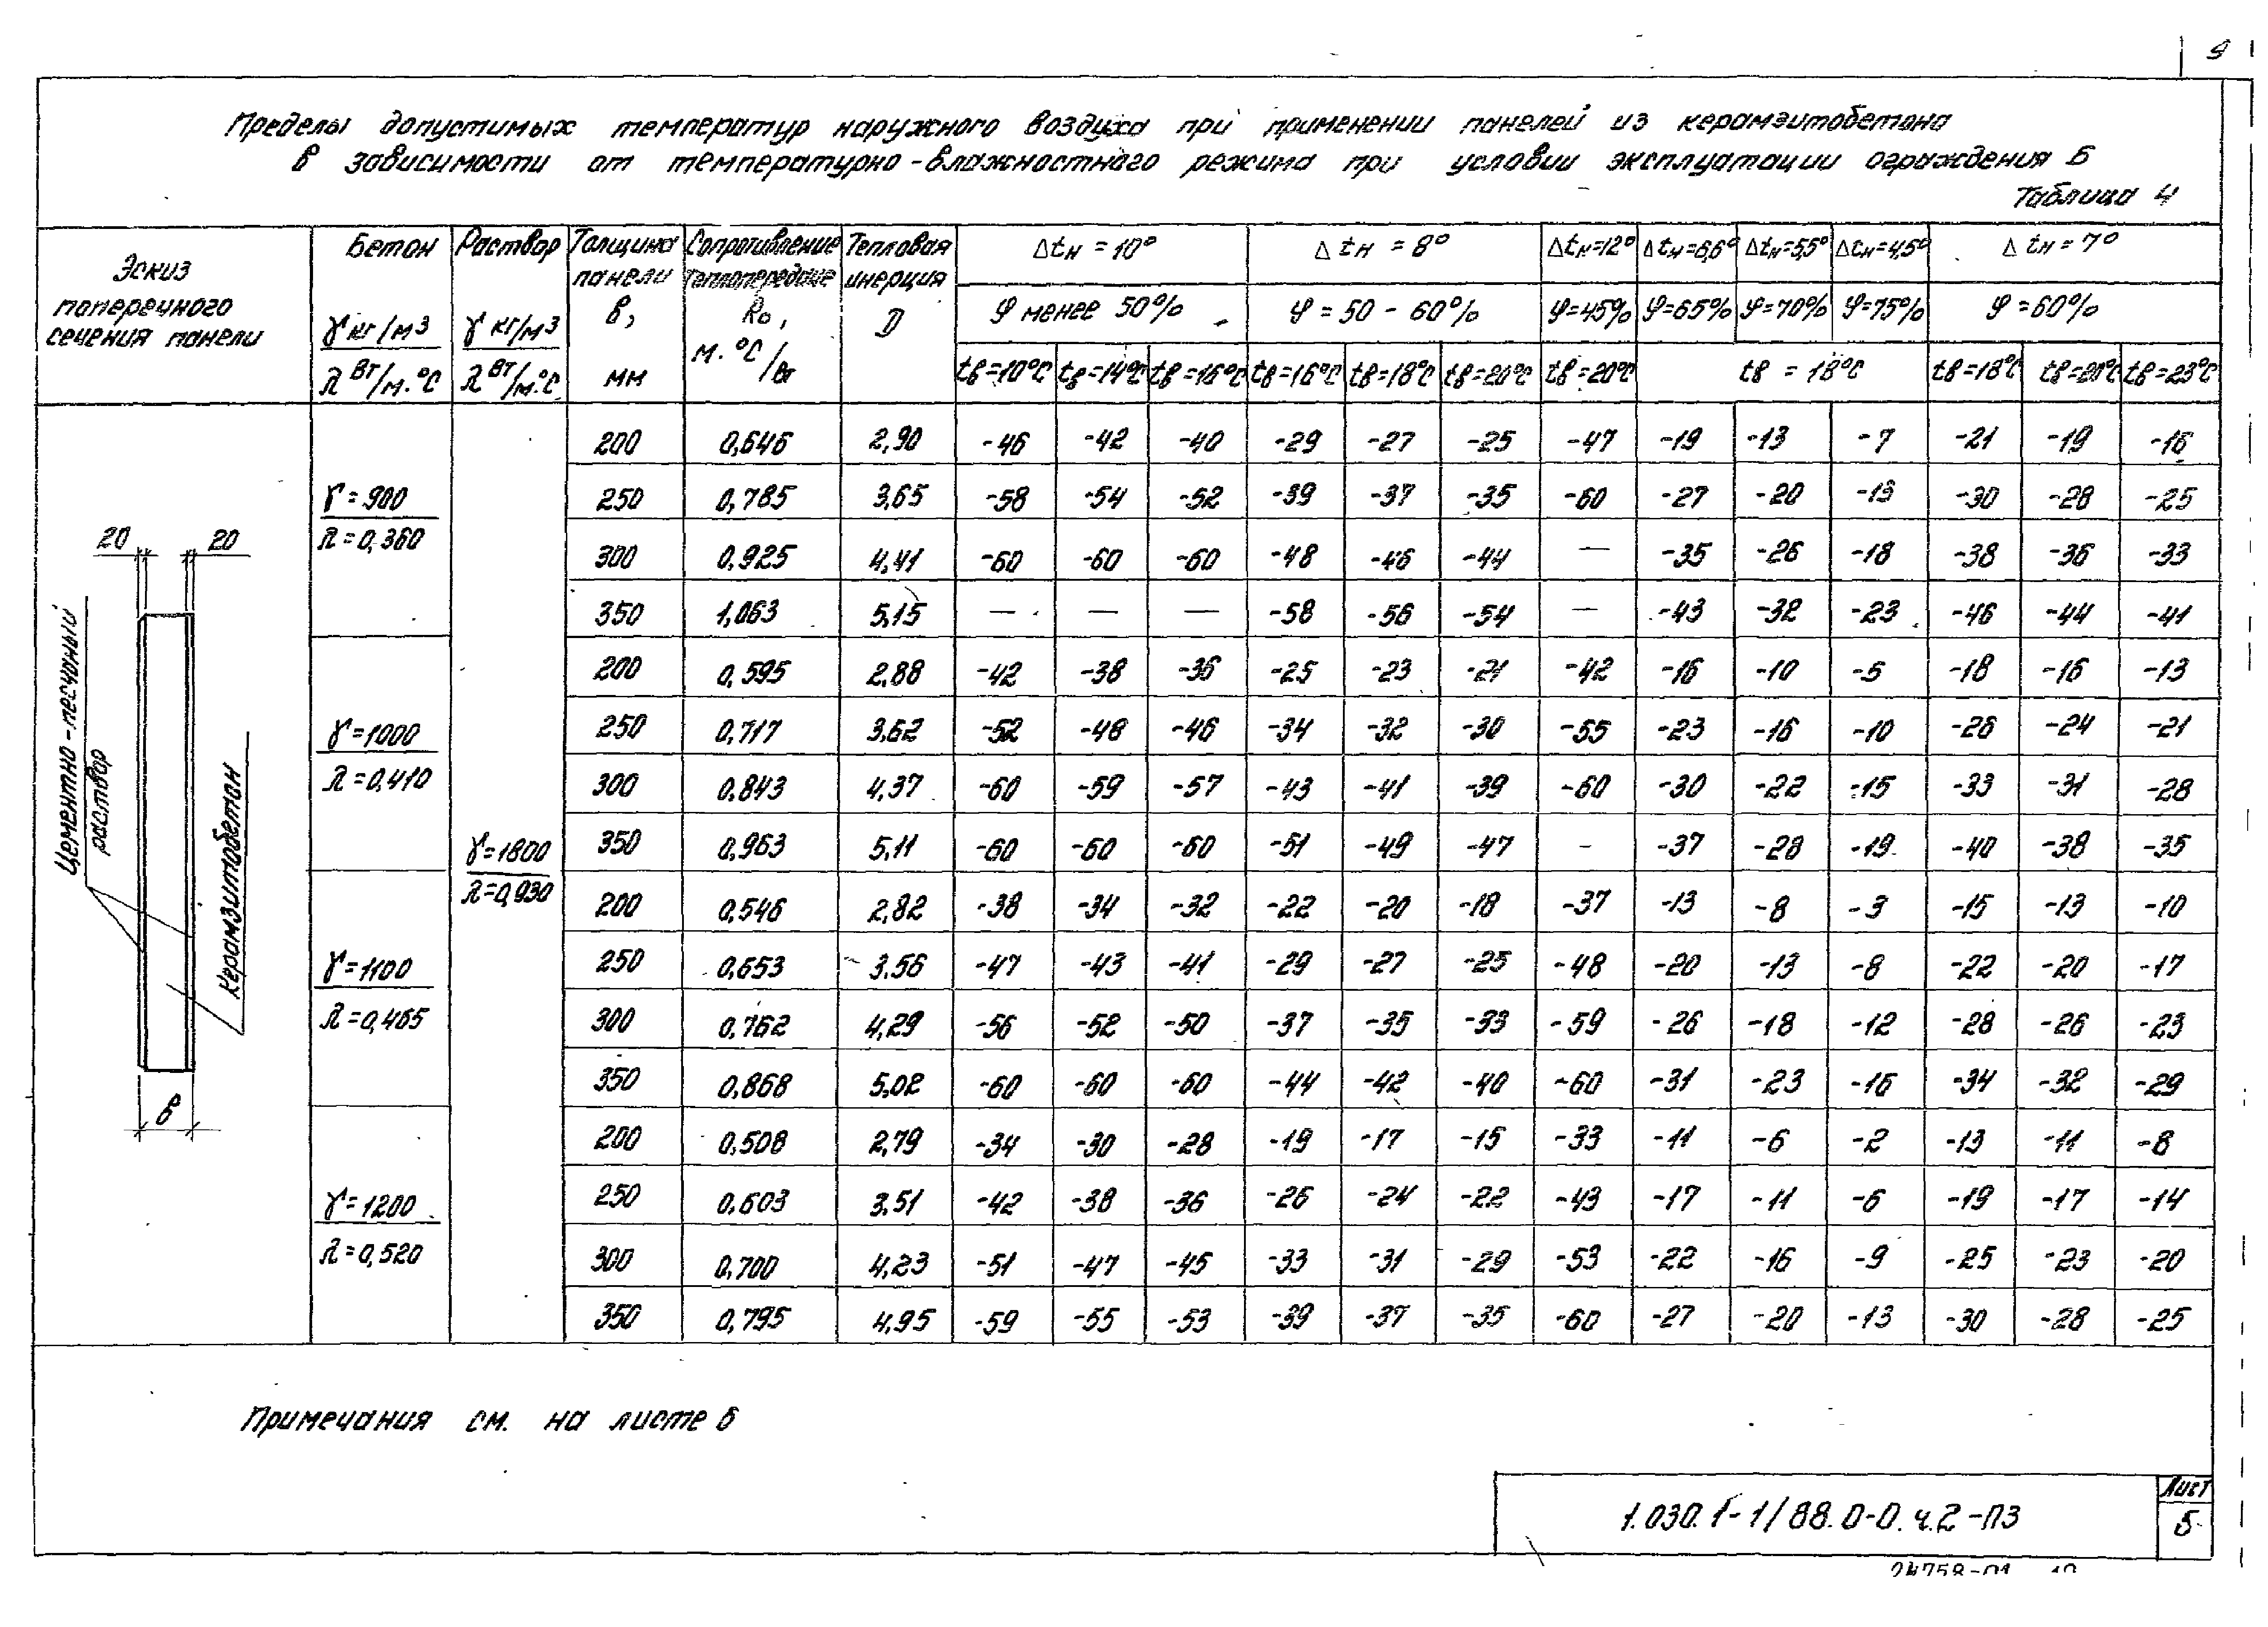 9
Пределы допустимых температур наружного воздуха при применении панелей из керамзитобетона
в зависимости от температурно-влажностного режима при условии эксплуатации ограждения Б
Таблица 4
Эскиз поперечного сечения панели
Бетон γ кг/м3 λ Вт/м.°С
Раствор γ кг/м3 λ Вт/м.°С
Толщина панели в, мм
Сопротивление теплопередаче Rо, м.°С/Вт
Тепловая инерция D
Δtн = 10° Δtн = 8° Δtн=12° Δtн=6,6° Δtн=5,5° Δtн=4,5° Δtн=7°
φ менее 50% φ = 50 - 60% φ=45% φ=65% φ=70% φ=75% φ=60%
tв=10°С tв=14°С tв=16°С tв=16°С tв=18°С tв=20°С tв=20°С tв = 18°С tв=18°С tв=20°С tв=23°С
20 20
Цементно-песчаный раствор
Керамзитобетон
в
γ=1800
λ=0,930
γ=900
λ=0,360
200 0,646 2,90 -46 -42 -40 -29 -27 -25 -47 -19 -13 -7 -21 -19 -16
250 0,785 3,65 -58 -54 -52 -39 -37 -35 -60 -27 -20 -13 -30 -28 -25
300 0,925 4,41 -60 -60 -60 -48 -46 -44 — -35 -26 -18 -38 -36 -33
350 1,063 5,15 — — — -58 -56 -54 — -43 -32 -23 -46 -44 -41
γ=1000
λ=0,410
200 0,595 2,88 -42 -38 -36 -25 -23 -21 -42 -16 -10 -5 -18 -16 -13
250 0,717 3,62 -52 -48 -46 -34 -32 -30 -55 -23 -16 -10 -26 -24 -21
300 0,843 4,37 -60 -59 -57 -43 -41 -39 -60 -30 -22 -15 -33 -31 -28
350 0,963 5,11 -60 -60 -60 -51 -49 -47 - -37 -28 -19 -40 -38 -35
γ=1100
λ=0,465
200 0,546 2,82 -38 -34 -32 -22 -20 -18 -37 -13 -8 -3 -15 -13 -10
250 0,653 3,56 -47 -43 -41 -29 -27 -25 -48 -20 -13 -8 -22 -20 -17
300 0,762 4,29 -56 -52 -50 -37 -35 -33 -59 -26 -18 -12 -28 -26 -23
350 0,868 5,02 -60 -60 -60 -44 -42 -40 -60 -31 -23 -16 -34 -32 -29
γ=1200
λ=0,520
200 0,508 2,79 -34 -30 -28 -19 -17 -15 -33 -11 -6 -2 -13 -11 -8
250 0,603 3,51 -42 -38 -36 -26 -24 -22 -43 -17 -11 -6 -19 -17 -14
300 0,700 4,23 -51 -47 -45 -33 -31 -29 -53 -22 -16 -9 -25 -23 -20
350 0,795 4,95 -59 -55 -53 -39 -37 -35 -60 -27 -20 -13 -30 -28 -25
Примечания см. на листе 6
1.030.1-1/88.0-0.ч.2-ПЗ
Лист
5